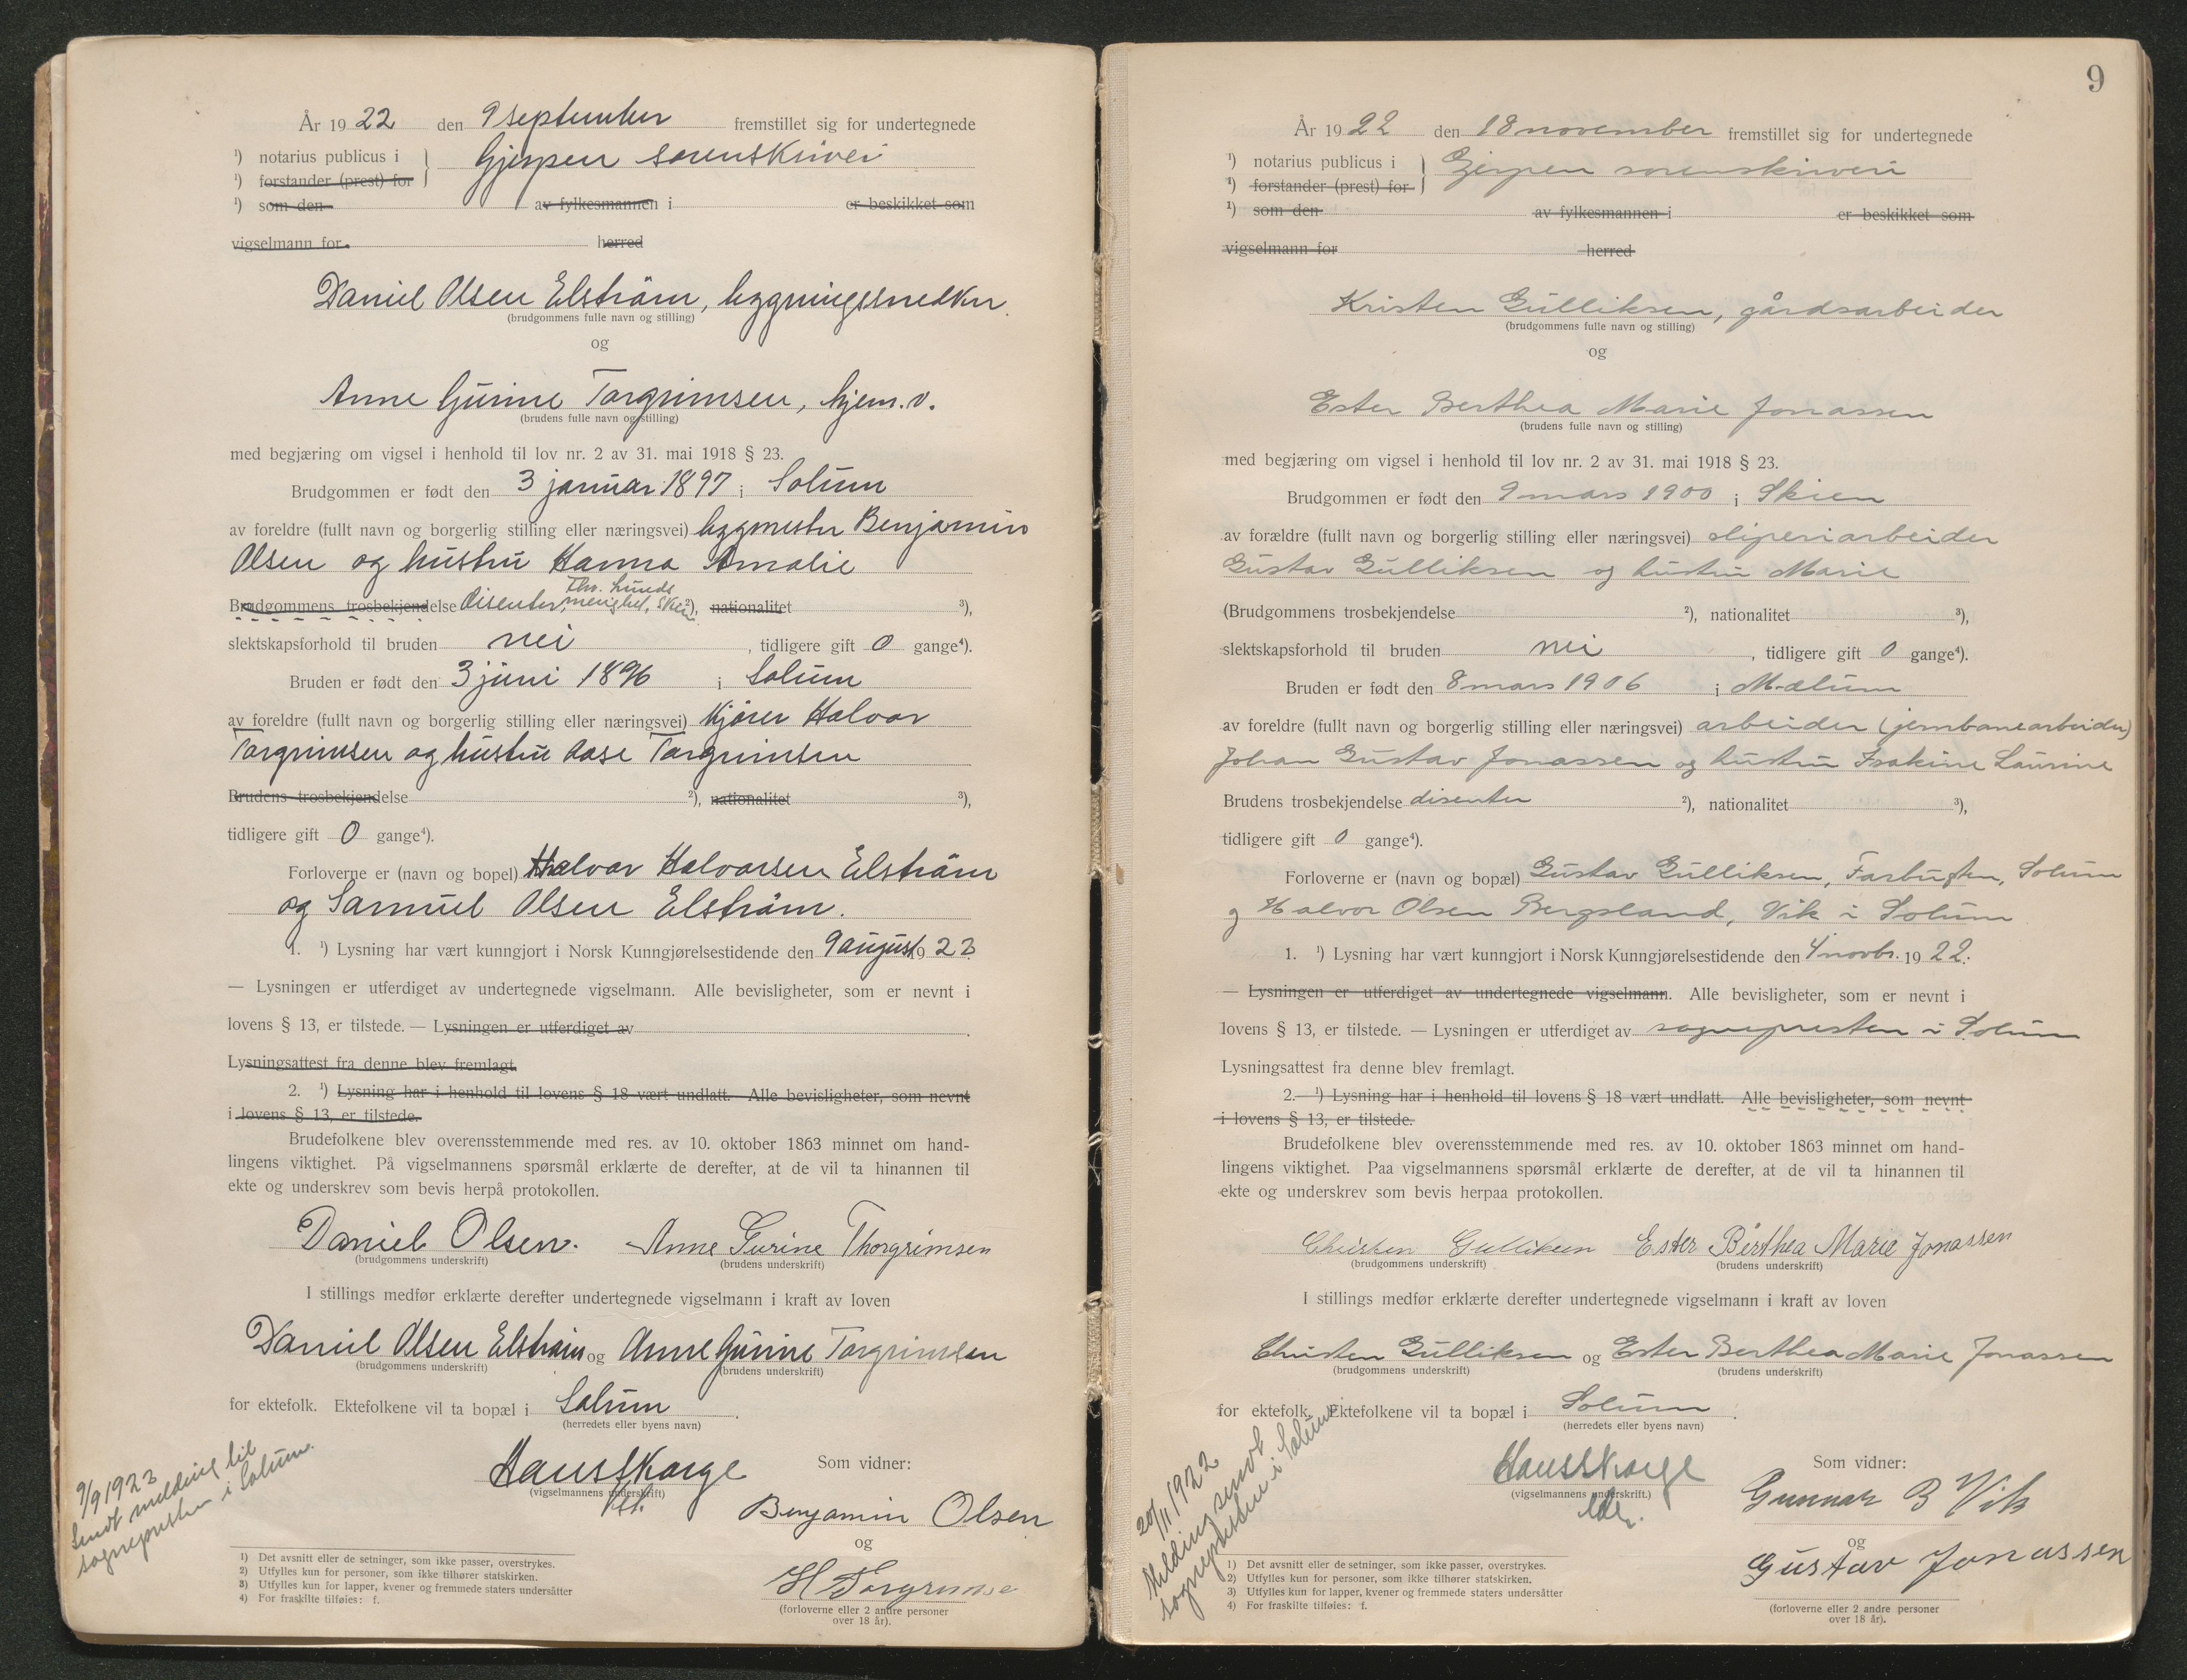 År 1922 den 9 september fremstillet sig for undertegnede
¹) notarius publicus i } Gjerpen sorenskriveri
¹) forstander (prest) for
¹) som den av fylkesmannen i er beskikket som
vigselmann for herred
Daniel Olsen Elstrøm, bygningssnedker.
(brudgommens fulle navn og stilling)
og
Anne Gurine Torgrimsen, hjem.v.
(brudens fulle navn og stilling)
med begjæring om vigsel i henhold til lov nr. 2 av 31. mai 1918 § 23.
Brudgommen er født den 3 januar 1897 i Solum
av foreldre (fullt navn og borgerlig stilling eller næringsvei) bygmester Benjamin
Olsen og hustru Hanna Amalie
Brudgommens trosbekjendelse disenter, Thv. Lunds menighet, Skien ²), nationalitet ³),
slektskapsforhold til bruden nei , tidligere gift 0 gange⁴).
Bruden er født den 3 juni 1896 i Solum
av foreldre (fullt navn og borgerlig stilling eller næringsvei) kjører Halvor
Torgrimsen og hustru Aase Torgrimsen
Brudens trosbekjendelse ²), nationalitet ³),
tidligere gift 0 gange⁴).
Forloverne er (navn og bopel) Halvor Halvorsen Elstrøm
og Samuel Olsen Elstrøm.
1. ¹) Lysning har vært kunngjort i Norsk Kunngjørelsestidende den 9 august 1922.
— Lysningen er utferdiget av undertegnede vigselmann. Alle bevisligheter, som er nevnt i
lovens § 13, er tilstede. — Lysningen er utferdiget av .
Lysningsattest fra denne blev fremlagt.
2. ¹) Lysning har i henhold til lovens § 18 vært undlatt. Alle bevisligheter, som nevnt
i lovens § 13, er tilstede.
Brudefolkene blev overensstemmende med res. av 10. oktober 1863 minnet om hand-
lingens viktighet. På vigselmannens spørsmål erklærte de derefter, at de vil ta hinannen til
ekte og underskrev som bevis herpå protokollen.
Daniel Olsen. Anne Gurine Thorgrimsen
(brudgommens underskrift) (brudens underskrift)
I stillings medfør erklærte derefter undertegnede vigselmann i kraft av loven
Daniel Olsen Elstrøm og Anne Gurine Torgrimsen
(brudgommens underskrift) (brudens underskrift)
for ektefolk. Ektefolkene vil ta bopæl i Solum .
(herredets eller byens navn)
Hans Skorge
(vigselmannens underskrift)
Som vidner:
Benjamin Olsen
og
H Torgrimse
(forloverne eller 2 andre personer
over 18 år).
9/9 1922
Sendt melding til
sognepresten i Solum.
1) Det avsnitt eller de setninger, som ikke passer, overstrykes.
2) Utfylles kun for personer, som ikke tilhører statskirken.
3) Utfylles kun for lapper, kvener og fremmede staters undersåtter
4) For fraskilte tilføies: f.
9
År 1922 den 18 november fremstillet sig for undertegnede
¹) notarius publicus i } Gjerpen sorenskriveri
¹) forstander (prest) for
¹) som den av fylkesmannen i er beskikket som
vigselmann for herred
Kristen Gulliksen, gårdsarbeider
(brudgommens fulle navn og stilling)
og
Ester Berthea Marie Jonassen
(brudens fulle navn og stilling)
med begjæring om vigsel i henhold til lov nr. 2 av 31. mai 1918 § 23.
Brudgommen er født den 9 mars 1900 i Skien
av forældre (fullt navn og borgerlig stilling eller næringsvei) sliperiarbeider
Gustav Gulliksen og hustru Marie
(Brudgommens trosbekjendelse ²), nationalitet ³),
slektskapsforhold til bruden nei , tidligere gift 0 gange⁴).
Bruden er født den 8 mars 1906 i Mælum
av foreldre (fullt navn og borgerlig stilling eller næringsvei) arbeider (jernbanearbeider)
Johan Gustav Jonassen og hustru Isakine Laurine
Brudens trosbekjendelse disenter ²), nationalitet ³),
tidligere gift 0 gange⁴).
Forloverne er (navn og bopæl) Gustav Gulliksen, Solum
og Halvor Olsen Bergsland, Vik i Solum
1. ¹) Lysning har vært kunngjort i Norsk Kunngjørelsestidende den 4 novbr. 1922.
— Lysningen er utferdiget av undertegnede vigselmann. Alle bevisligheter, som er nevnt i
lovens § 13, er tilstede. — Lysningen er utferdiget av sognepresten i Solum
Lysningsattest fra denne blev fremlagt.
2. ¹) Lysning har i henhold til lovens § 18 vært undlatt. Alle bevisligheter, som nevnt
i lovens § 13, er tilstede.
Brudefolkene blev overensstemmende med res. av 10. oktober 1863 minnet om hand-
lingens viktighet. Paa vigselmannens spørsmål erklærte de derefter, at de vil ta hinannen til
ekte og underskrev som bevis herpaa protokollen.
Christen Gulliksen Ester Berthea Marie Jonassen
(brudgommens underskrift) (brudens underskrift)
I stillings medfør erklærte derefter undertegnede vigselmann i kraft av loven
Christen Gulliksen og Ester Berthea Marie Jonassen
(brudgommens underskrift) (brudens underskrift)
for ektefolk. Ektefolkene vil ta bopæl i Solum .
(herredets eller byens navn)
Hans Skorge
(vigselmannens underskrift.)
Som vidner:
Gunnar B Vik
og
Gustav Jonassen
(forloverne eller 2 andre personer
over 18 år).
20/11 1922
Melding sendt
sognepresten i Solum
1) Det avsnitt eller de setninger, som ikke passer, overstrykes.
2) Utfylles kun for personer, som ikke tilhører statskirken.
3) Utfylles kun for lapper, kvener og fremmede staters undersåtter
4) For fraskilte tilføies: f.